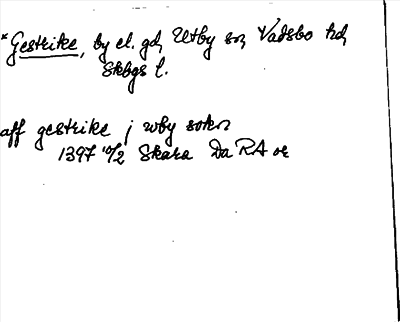 *Gestrike, by el. gd, Utby sn, Vadsbo hd,
Skbgs l.
aff gestrike j wby sokn
1397 10/2 Skara Da RA or